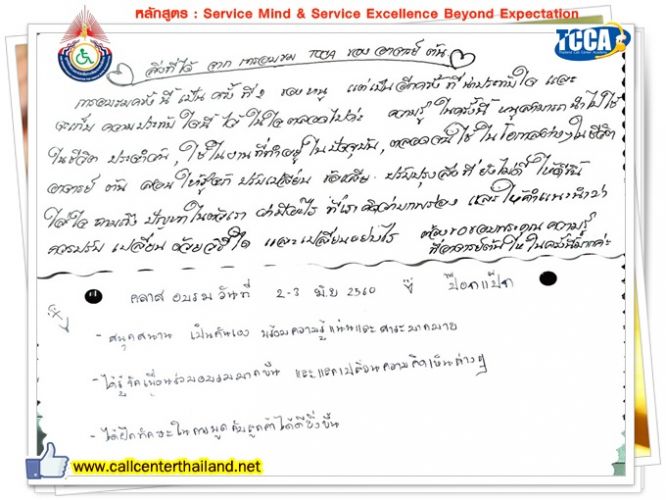 หลักสูตร : Service Mind & Service Excellence Beyond Expectation
TCCA
สิ่งที่ได้ จาก การอบรม TCCA ของ อาจารย์ ต้น
การอบรมครั้งนี้ เป็น ครั้งที่ 2 ของหนู แต่เป็นอีกครั้ง ที่น่าประทับใจ และ
จะเก็บ ความประทับใจนี้ ไว้ ในใจตลอดไปค่ะ ความรู้ ในครั้งนี้ หนูสามารถ นำไปใช้
ในชีวิต ประจำวัน, ใช้ในงานที่ทำอยู่ ในปัจจุบัน, ตลอดจนใช้ ในโอกาสต่างๆในชีวิต
อาจารย์ ต้น สอน ให้รู้จัก ปรับเปลี่ยน ข้อเสีย ปรับปรุงสิ่งที่ยังไม่ดี ให้ดีขึ้น
ใส่ใจ ถามถึง ปัญหาในตัวเรา ว่ามีอะไร ที่เราคิดว่าบกพร่อง และให้คำแนะนำว่า
ควรปรับ เปลี่ยน ด้วยวิธีใด และเปลี่ยนอย่างไร ต้องขอขอบพระคุณ ความรู้
ที่อาจารย์ต้นให้ในครั้งนี้มากค่ะ
คลาส อบรม วันที่ 2-3 มิ.ย 2560 ป๊อกแป๊ก
- สนุกสนาน เป็นกันเอง พร้อมความรู้แน่นและสาระมากมาย
- ได้รู้จักเพื่อนร่วมอบรมมากขึ้น และแลกเปลี่ยนความคิดเห็นต่างๆ
- ได้ฝึกทักษะในการพูดกับลูกค้าได้ดียิ่งขึ้น
www.callcenterthailand.net